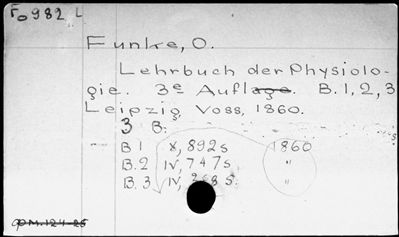 Fo982 L
Funke, O.
Lehrbuch der Physiolo-
gie. 3e Auflage. B. 1, 2, 3
Leipzig, Voss, 1860.
3 B.
B 1 X, 892s 1860
B. 2 IV, 747s "
B. 3 IV, s. "
M. 124-25